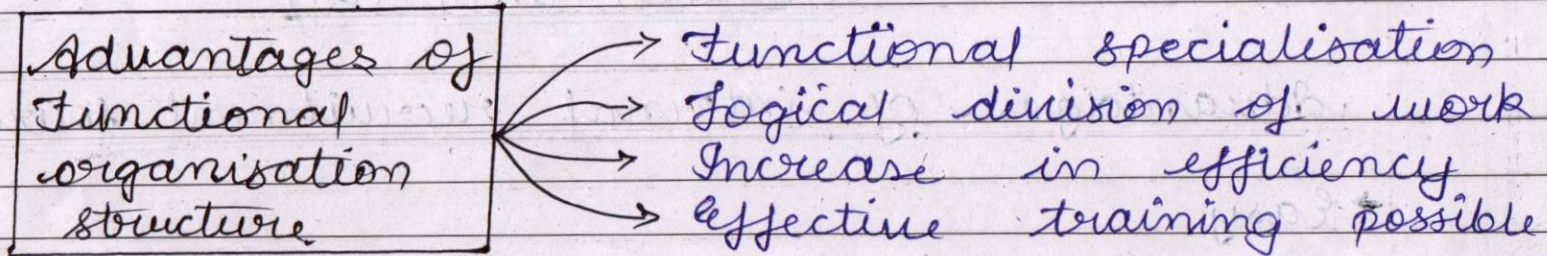 Advantages of
Functional
organisation
structure
Functional specialisation
Logical division of work
Increase in efficiency
Effective training possible